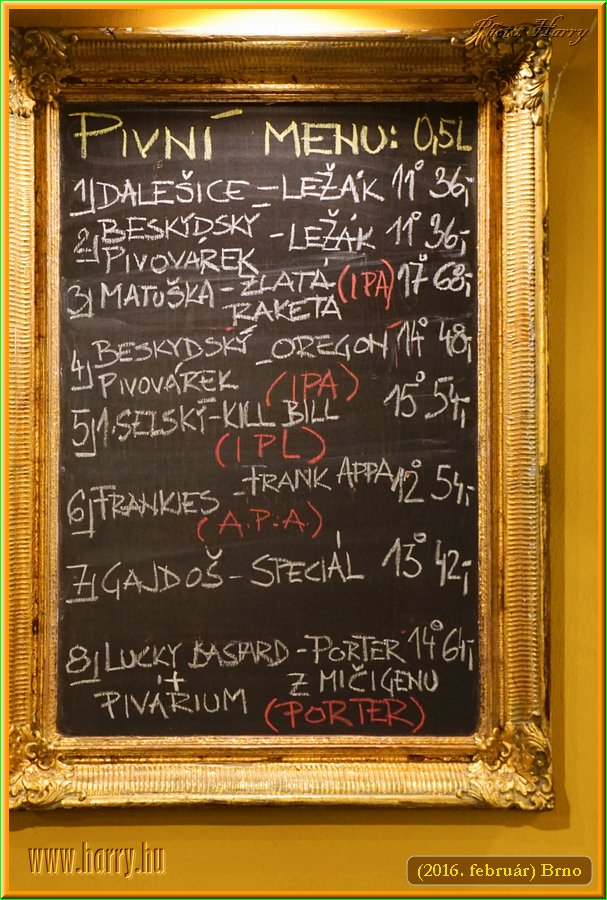 Photo: Harry
PIVNÍ MENU: 0,5L
1) DALEŠICE - LEŽÁK 11° 36,-
2) BESKYDSKÝ PIVOVÁREK - LEŽÁK 11° 36,-
3) MATUŠKA - ZLATÁ RAKETA (IPA) 17° 68,-
4) BESKYDSKÝ PIVOVÁREK - OREGON (IPA) 14° 48,-
5) 1. SELSKÝ - KILL BILL (IPL) 15° 54,-
6) FRANKIES - FRANK APPA (A.P.A.) 12° 54,-
7) GAJDOŠ - SPECIÁL 13° 42,-
8) LUCKY BASTARD + PIVÁRIUM - PORTER Z MIČIGENU (PORTER) 14° 64,-
www.harry.hu
(2016. február) Brno